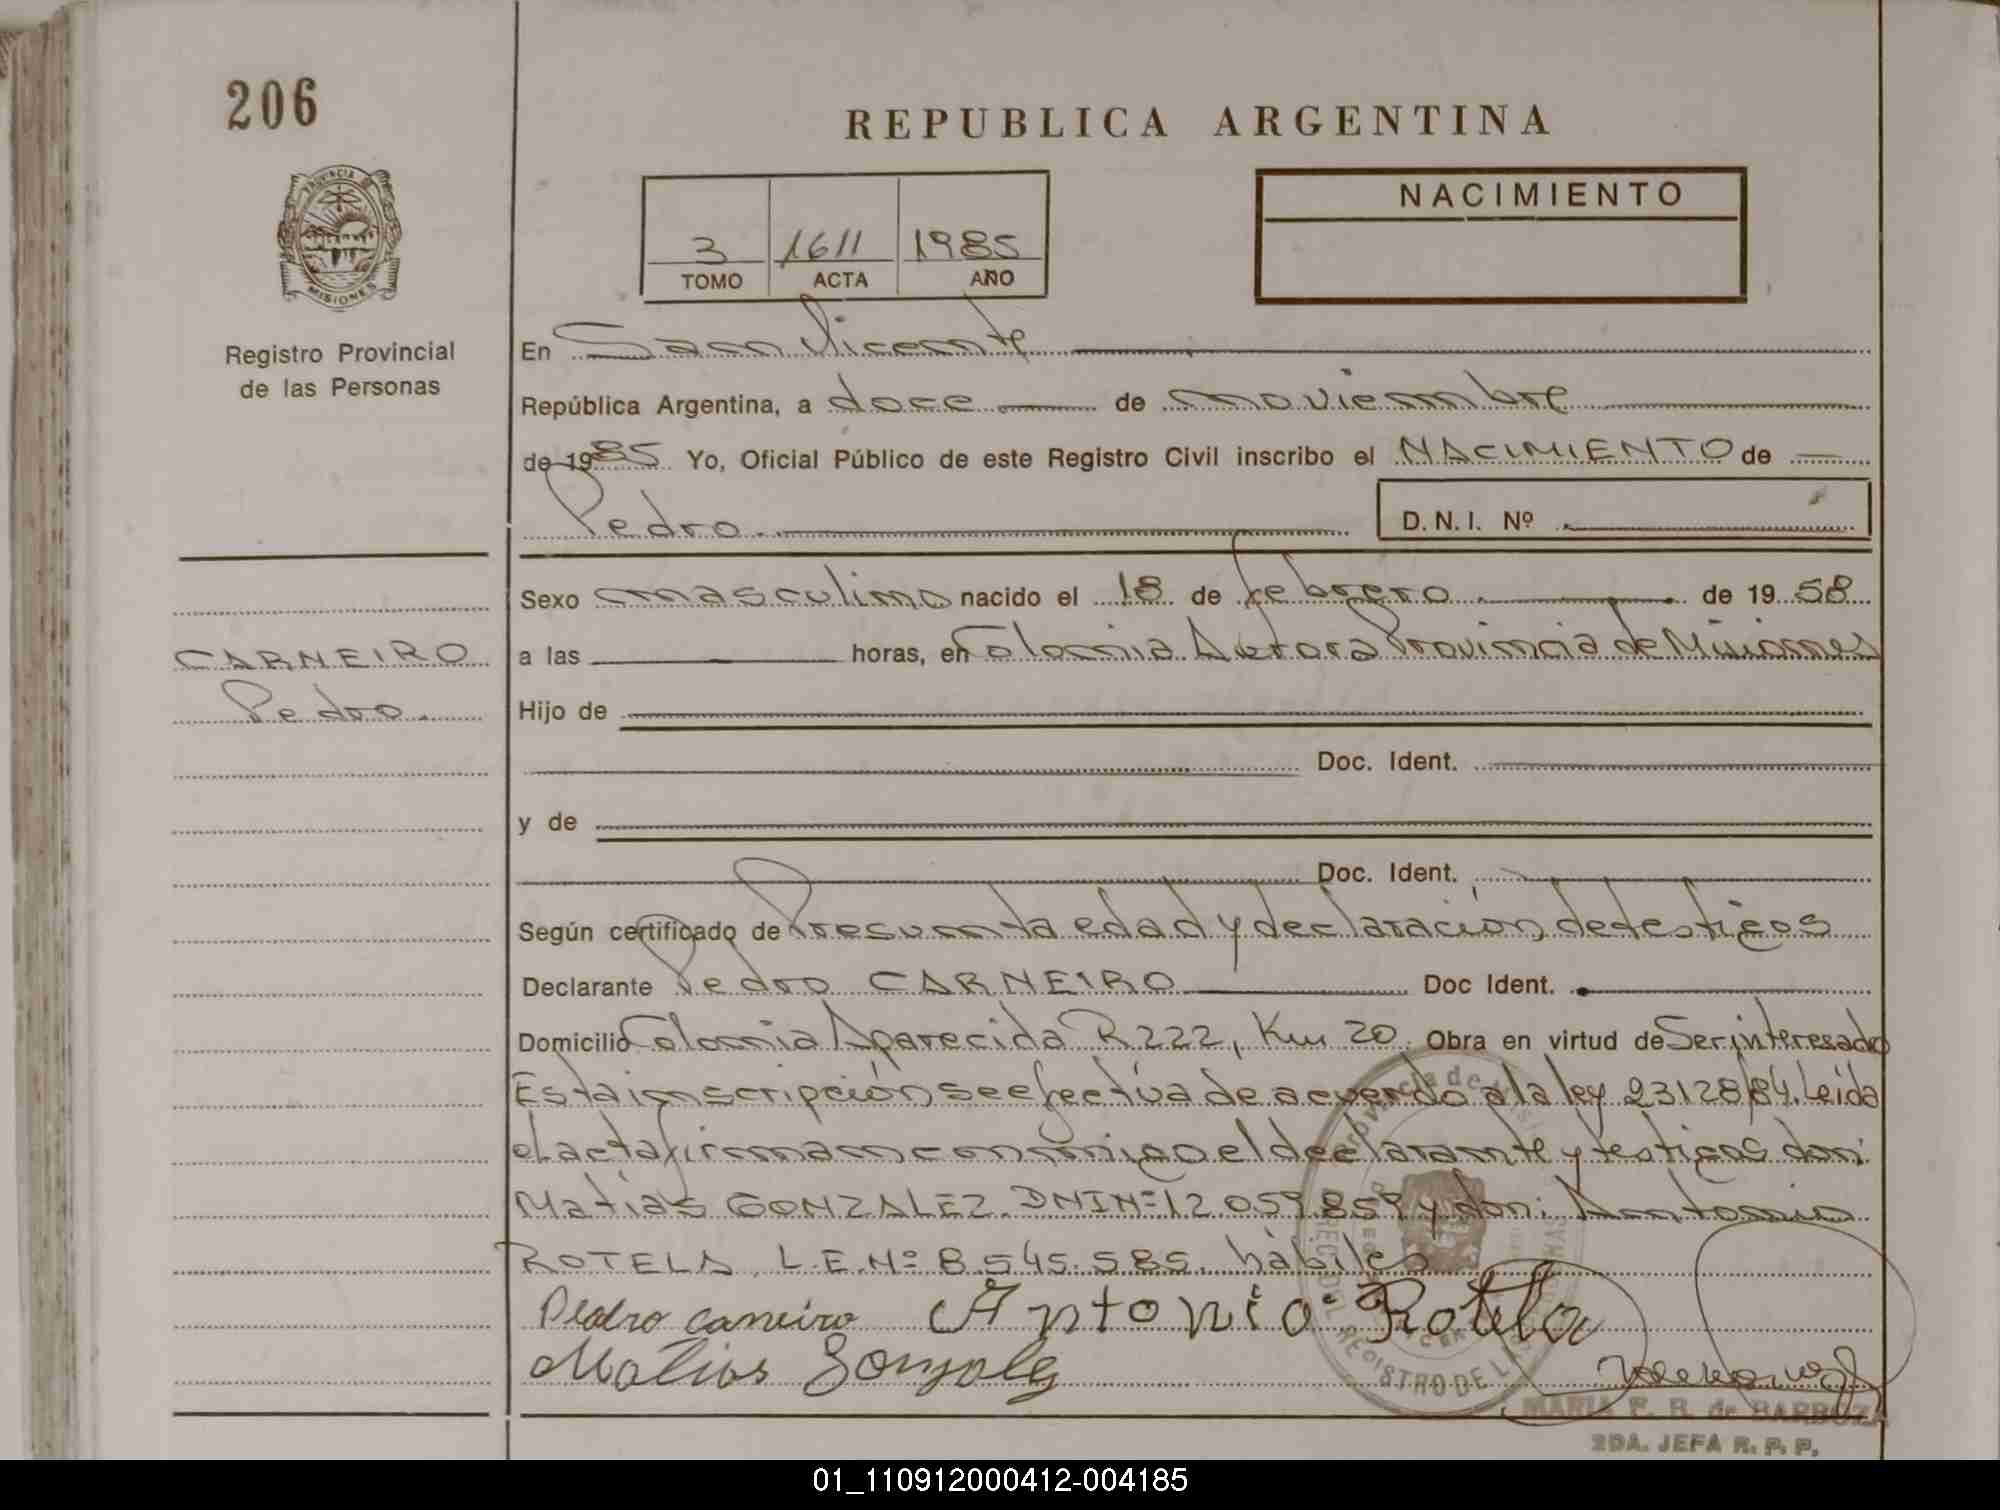 206
REPUBLICA ARGENTINA
PROVINCIA DE
MISIONES
Registro Provincial
de las Personas
3 1611 1985
TOMO ACTA AÑO
NACIMIENTO
En San Vicente
República Argentina, a doce de noviembre
de 1985 Yo, Oficial Público de este Registro Civil inscribo el NACIMIENTO de
Pedro.
D.N.I. Nº
Sexo masculino nacido el 18 de febrero de 19 58
CARNEIRO
Pedro.
a las horas, en Colonia Aurora Provincia de Misiones
Hijo de
Doc. Ident.
y de
Doc. Ident.
Según certificado de Presunta edad y declaración de testigos
Declarante Pedro CARNEIRO Doc Ident.
Domicilio Colonia Aparecida R 222, Km 20. Obra en virtud de Ser interesado
Esta inscripción se efectúa de acuerdo a la ley 23128/84. Leída
el acta firman conmigo el declarante y testigos don:
Matías GONZALEZ. DNI Nº 12.059.859 y don: Antonio
ROTELA, L.E. Nº 8.545.585. hábiles
Pedro caneiro Antonio Rotela
Matias Gonzalez
MARIA F. R. de BARBOZA
2DA. JEFA R. P. P.
01_110912000412-004185